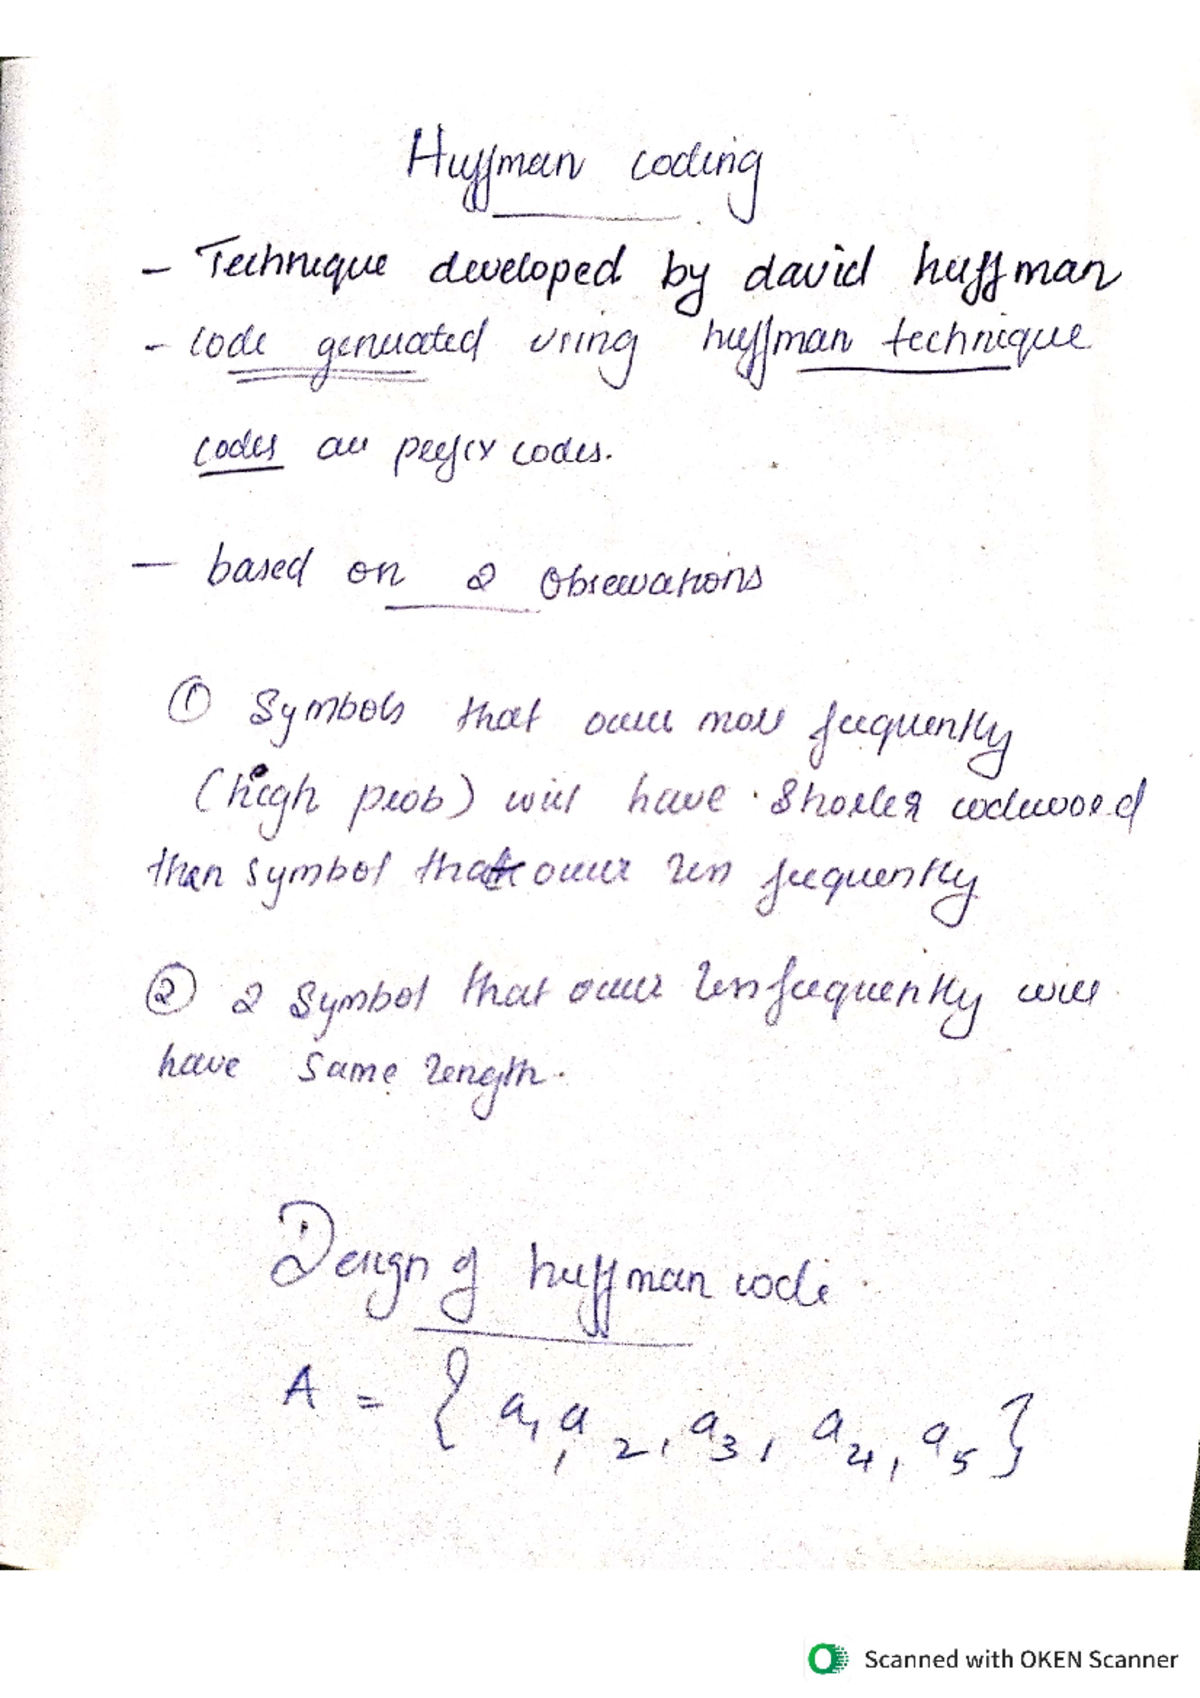 Huffman coding
- Technique developed by david huffman
- code generated using huffman technique
codes are prefix codes.
- based on 2 Observations
① Symbols that occur more frequently
(high prob) will have shorter codeword
than symbol that occur less frequently
② 2 Symbol that occur less frequently will
have same length.
Design of huffman code
A = { a1, a2, a3, a4, a5 }
Scanned with OKEN Scanner